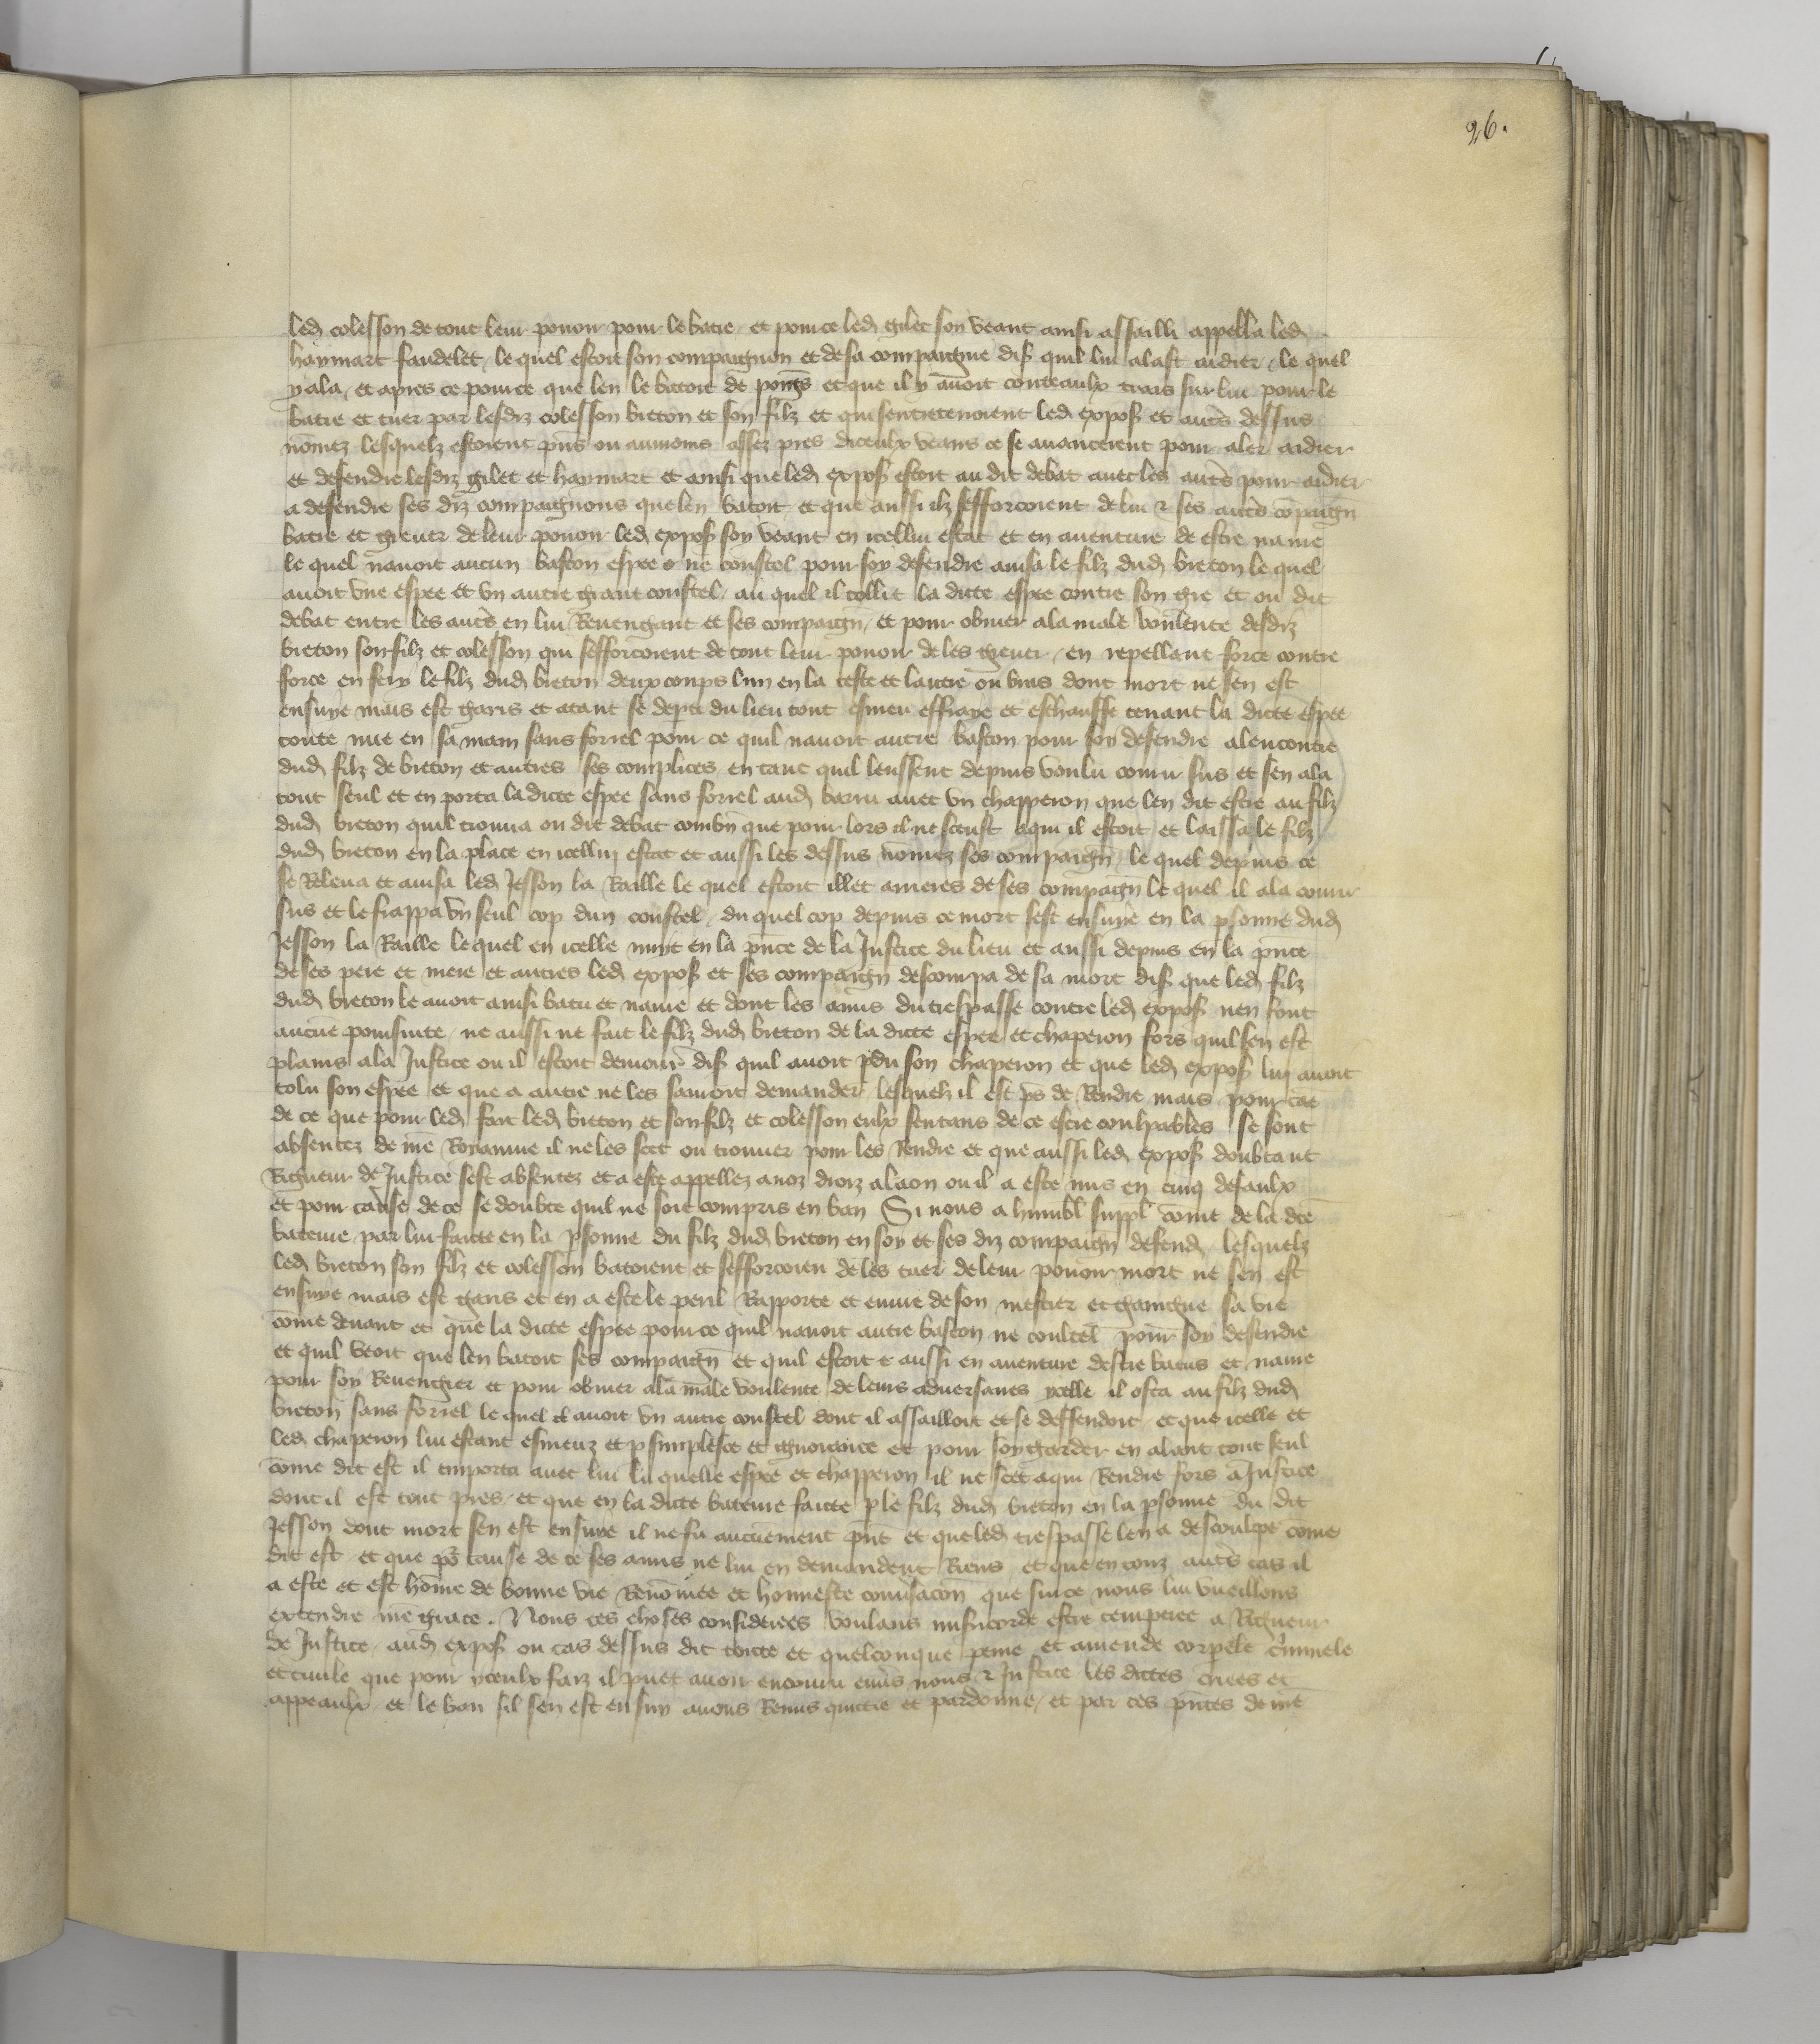 26.
led colesson de tout leur pouoir pour le batre et pource led gilet soy veant ainsi assailli appella led
haymart faudelet le quel estoit son compaignon et de sa compaignie dis quil lui alast aidier le quel
y ala et apres ce pource que len le batoit de poings et que il y auoit couteaulx trais sur lui pour le
batre et tuer par lesdiz colesson breton et son filz et qui sentretenoient led expos et autres dessus
nomez lesquelz estoient pns ou aumoins assez pres diceulx veans ce se auancerent pour aler aidier
et defendre lesdiz gilet et haymart et ainsi que led expos estoit au dit debat auec les autres pour aidier
a defendre ses diz compaignons que len batoit et que aussi ilz sefforcoient de lui & ses autres compaign
batre et greuer de leur pouoir led expos soy veant en icellui estat et en auenture de estre naure
le quel nauoit aucun baston espee ne coustel pour soy defendre auisa le filz dud breton le quel
auoit vne espee et vn autre grant coustel au quel il tollit la dicte espee contre son gre et ou dit
debat entre les autres en lui Reuengant et ses compaign et pour obuier ala male voulente desdiz
breton son filz et colesson qui sefforcoient de tout leur pouoir de les greuer en repellant force contre
force en fery le filz dud breton deux coups lun en la teste et lautre ou bras dont mort ne sen est
ensuye mais est garis et atant se depti du lieu tout esmeu effraye et eschauffe tenant la dicte espee
toute nue en sa main sans forrel pour ce quil nauoit autre baston pour soy defendre alencontre
dud filz de breton et autres ses complices en tant quil leussent depuis voulu courir sus et sen ala
tout seul et en porta ladicte espee sans forrel aud barru auec vn chapperon que len dit estre au filz
dud breton quil trouua ou dit debat combn que pour lors il ne sceust aqui il estoit et laissa le filz
dud breton en la place en icellui estat et aussi les dessus nomez ses compaign le quel depuis ce
se Releua et auisa led Jesson la Raille le quel estoit illec arrieres de ses compaign le quel il ala courir
sus et le frappa vn seul cop dun coustel du quel cop depuis ce mort sest ensuye en la psonne dud
Jesson la Raille lequel en icelle nuyt en la pnce de la Justice du lieu et aussi depuis en la pnce
de ses pere et mere et autres led expos et ses compaign descoulpa de sa mort dis que led filz
dud breton le auoit ainsi batu et naure et dont les amis du trespasse contre led expos nen font
aucune poursuite ne aussi ne fait le filz dud breton de la dicte espee et chaperon fors quil sen est
plains ala Justice ou il estoit demour dis quil auoit pdu son chaperon et que led expos lui auoit
tolu son espee et que a autre ne les sauroit demander lesquelz il est ps de Rendre mais pour cae
de ce que pour led fait led breton et son filz et colesson eulx sentans de ce estre coulpables se sont
absentez de nre Royaume il ne les scet ou trouuer pour les Rendre et que aussi led expos doubtant
Rigueur de Justice sest absentez et a este appellez anoz droiz alaon ou il a este mis en cinq defaulx
et pour cause de ce se doubte quil ne soit compris en ban Si nous a humbl suppl come de la dce
bateure par lui faicte en la psonne du filz dud breton en soy et ses diz compaign defend lesquelz
led breton son filz et colesson batoient et sefforcoien de les tuer de leur pouoir mort ne sen est
ensuye mais est garis et en a este le peril Rapporte et euure de son mestier et gaingne sa vie
come deuant et que la dicte espee pource quil nauoit autre baston ne coultel pour soy defendre
et quil veoit que len batoit ses compaign et quil estoit aussi en auenture destre batus et naure
pour soy Reuenger et pour obuier ala male voulente de leurs aduersaires ycelle il osta au filz dud
breton sans forrel le quel auoit vn autre coustel dont il assailloit et se deffendoit et que icelle et
led chaperon lui estant esmeuz et p simplesce et ignorance et pour soy garder en alant tout seul
come dit est il emporta auec lui la quelle espee et chapperon il ne scet aqui Rendre fors a Justice
dont il est tout pres et que en la dicte bateure faicte p le filz dud breton en la psonne du dit
Jesson dont mort sen est ensuye il ne fu aucunement pnt et que led trespasse len a descoulpe come
dit est et que por cause de ce ses amis ne lui en demandent Riens et que en touz autres cas il
a este et est home de bonne vie Renomee et honneste conuersacon que sur ce nous lui vueillons
extendre nre grace. Nous ces choses considerees voulans misericorde estre temperee a Rigueur
de Justice aud expos ou cas dessus dit toute et quelconque peine et amende corpele criminele
et ciuile que pour yceulx faiz il puet auoir encouru enuers nous & Justice les dictes criees et
appeaulx et le ban sil sen est ensuy auons Remis quictie et pardonne et par ces pntes de nre